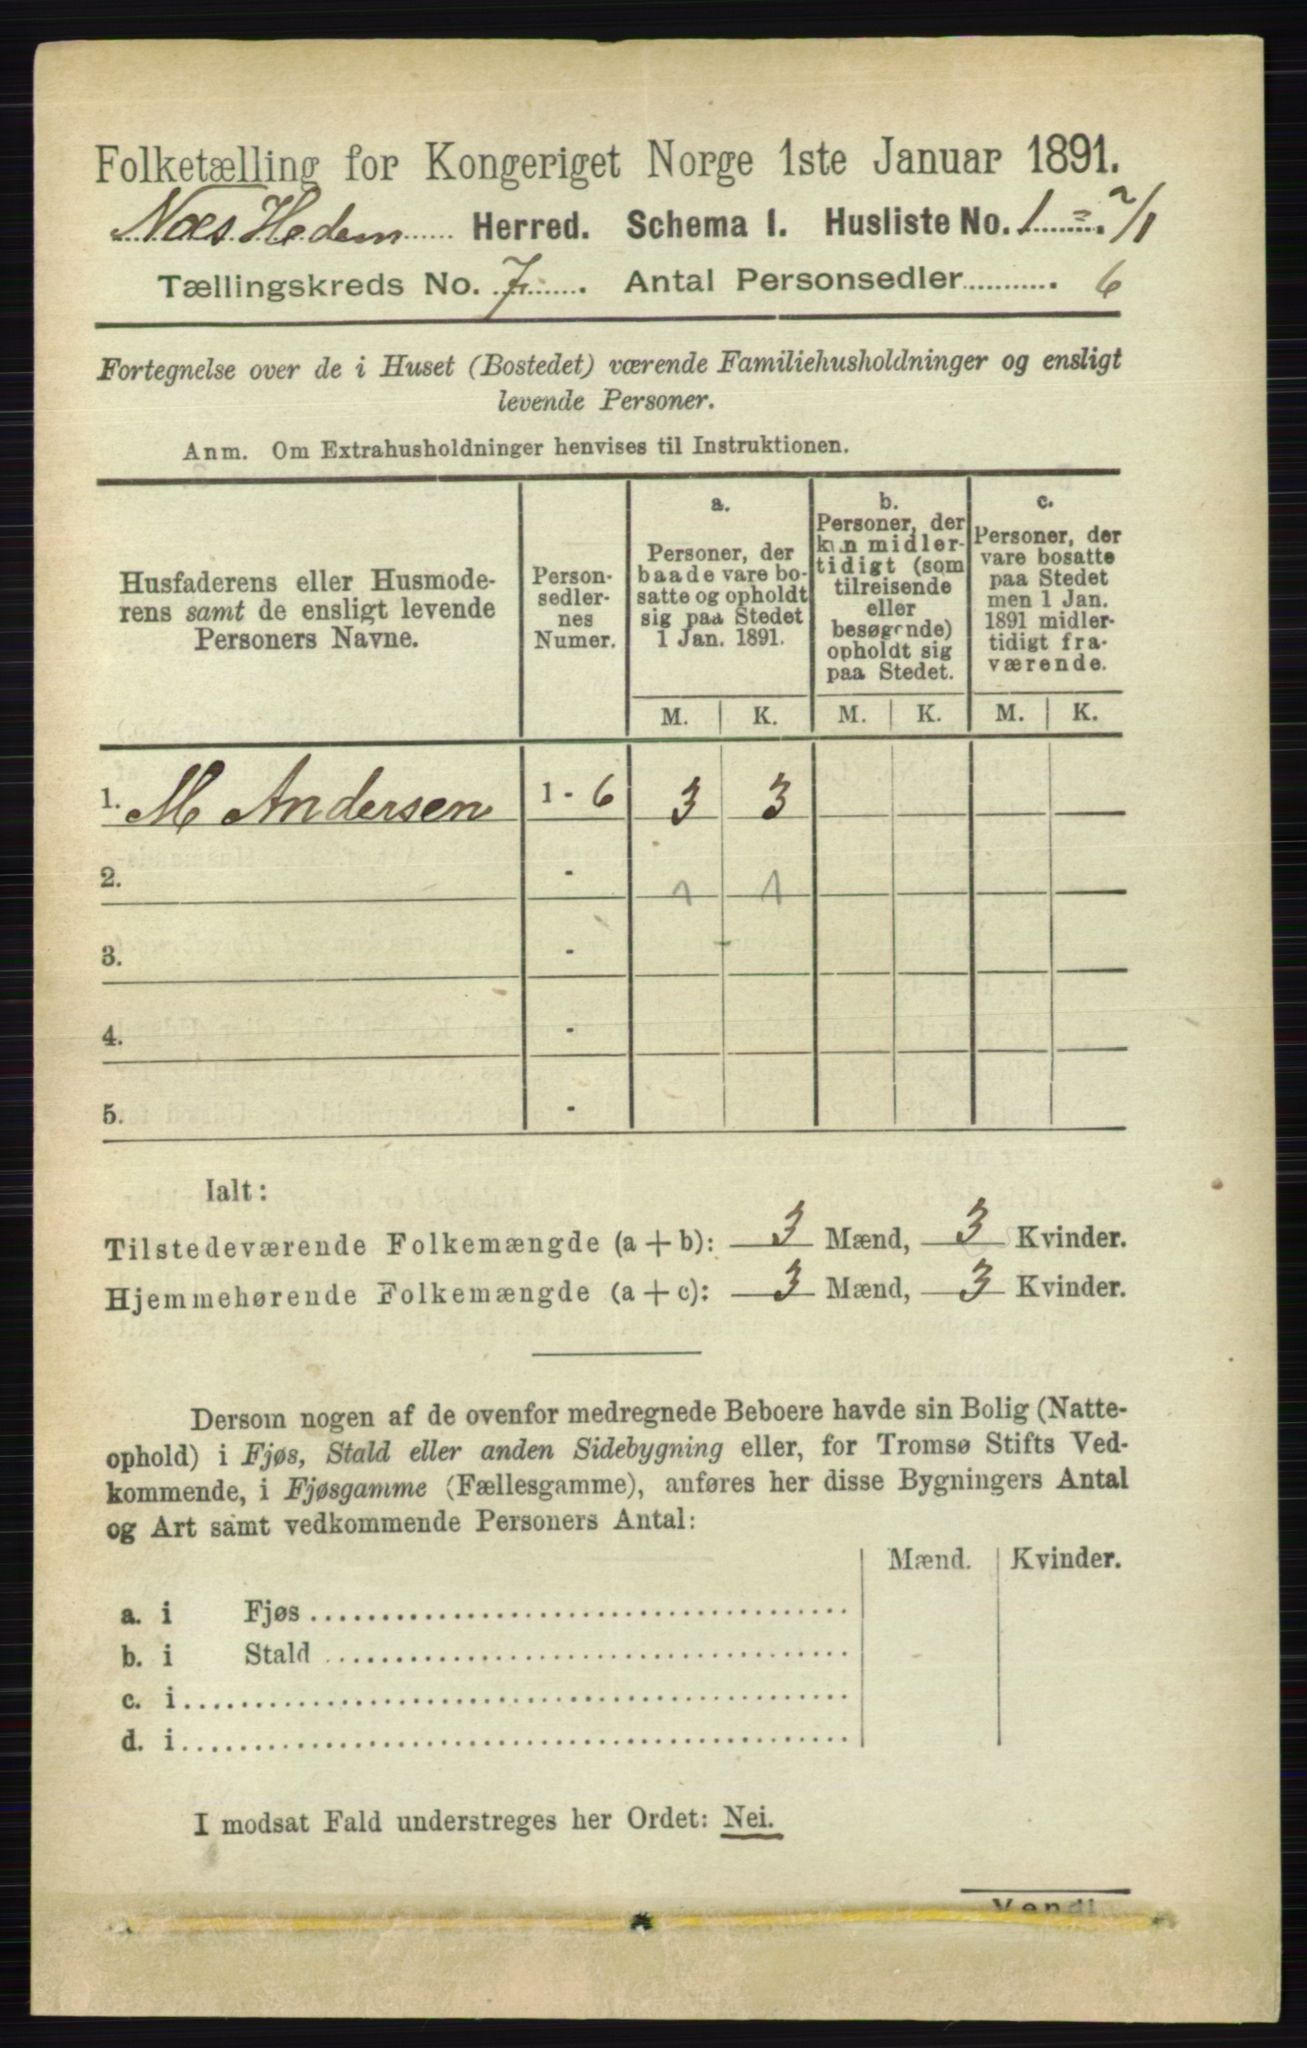 Folketælling for Kongeriget Norge 1ste Januar 1891.
Næs Hedem Herred. Schema I. Husliste No. 1 = 2/1
Tællingskreds No. 7. Antal Personsedler 6
Fortegnelse over de i Huset (Bostedet) værende Familiehusholdninger og ensligt
levende Personer.
Anm. Om Extrahusholdninger henvises til Instruktionen.
Husfaderens eller Husmode-
rens samt de ensligt levende
Personers Navne.
Person-
sedler-
nes
Numer.
a.
Personer, der
baade vare bo-
satte og opholdt
sig paa Stedet
1 Jan. 1891.
b.
Personer, der
kun midler-
tidigt (som
tilreisende
eller
besøgende)
opholdt sig
paa Stedet.
c.
Personer, der
vare bosatte
paa Stedet
men 1 Jan.
1891 midler-
tidigt fra-
værende.
M. K. M. K. M. K.
1. M Andersen 1 - 6 3 3
2. - 1 1
3. -
4. -
5. -
Ialt:
Tilstedeværende Folkemængde (a + b): 3 Mænd, 3 Kvinder.
Hjemmehørende Folkemængde (a + c): 3 Mænd, 3 Kvinder.
Dersom nogen af de ovenfor medregnede Beboere havde sin Bolig (Natte-
ophold) i Fjøs, Stald eller anden Sidebygning eller, for Tromsø Stifts Ved-
kommende, i Fjøsgamme (Fællesgamme), anføres her disse Bygningers Antal
og Art samt vedkommende Personers Antal:
Mænd. Kvinder.
a. i Fjøs
b. i Stald
c. i
d. i
I modsat Fald understreges her Ordet: Nei.
Vend!